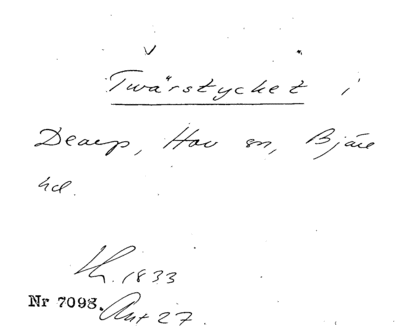 Twärstycket i
Dearp, Hov sn, Bjäre
hd.
Lh. 1833
Nr 7098. Ant 27.